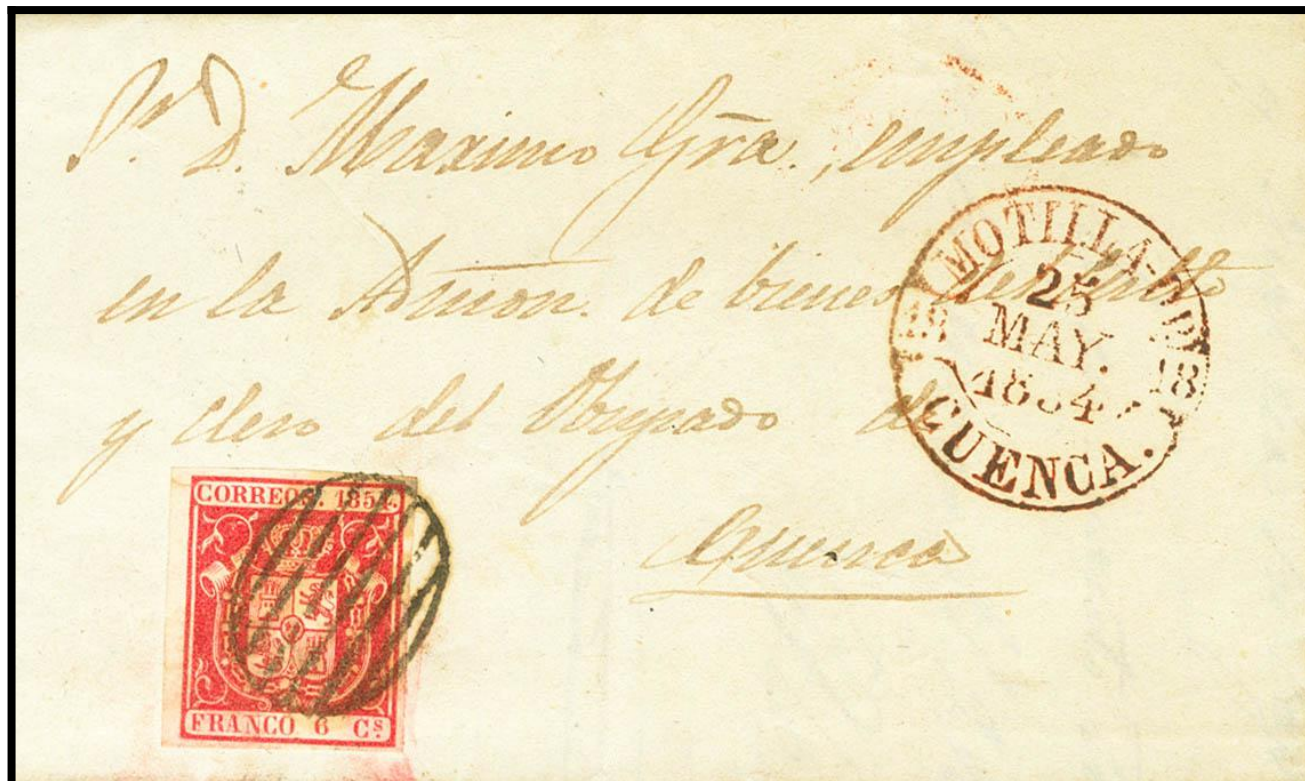 Sr. D. Maximo Gra., empleado
en la Admon. de bienes del
y clero del Obispado de
Cuenca
MOTILLA-DP
25
MAY.
1854
18 18
CUENCA.
CORREOS. 1854.
FRANCO 6 Cs